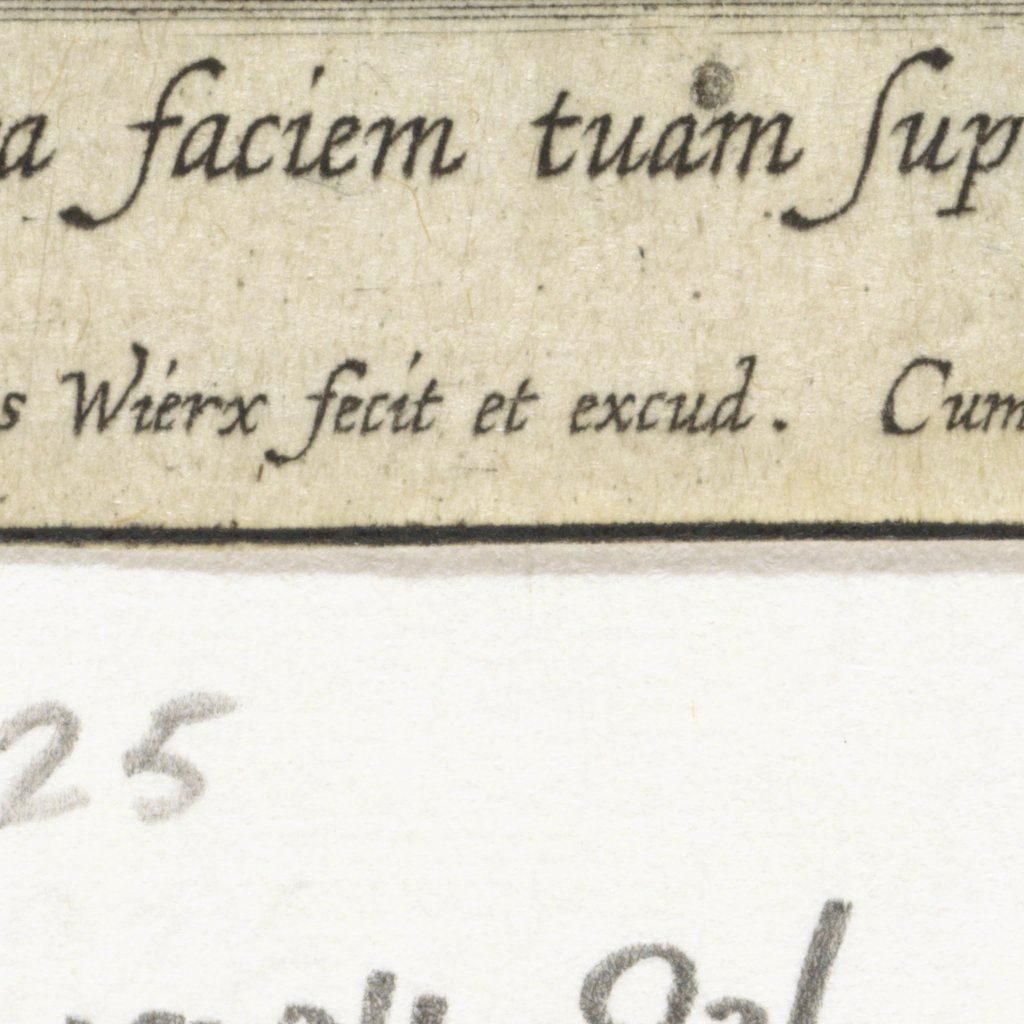 a faciem tuam ſup
s Wierx fecit et excud. Cum
25